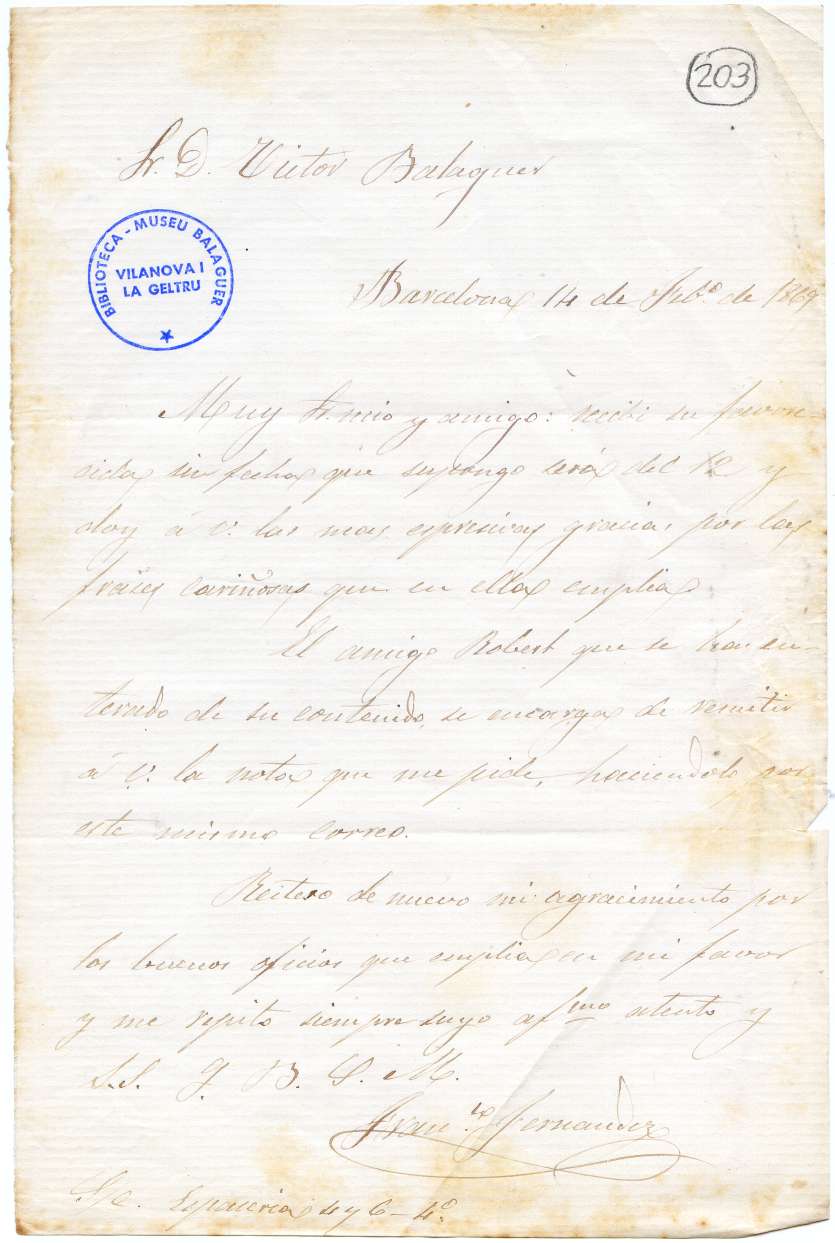 203
Sr. D. Victor Balaguer
BIBLIOTECA - MUSEU BALAGUER
VILANOVA I
LA GELTRU
Barcelona 14 de Feb.o de 1869
Muy Sr. mio y amigo: recibi su favore-
cida sin fecha que supongo será del 12 y
doy á V. las mas espresivas gracias por las
frases cariñosas que en ella emplea.
El amigo Robert que se ha en-
terado de su contenido, se encarga de remitir
á V. la nota que me pide, haciendolo por
este mismo correo.
Reitero de nuevo mi agracimiento por
los buenos oficios que emplea en mi favor
y me repito siempre suyo afmo atento y
S.S. Q. B. S. M.
Fran.co Fernandez
S/c. Espaseria 4 y 6 - 4.o